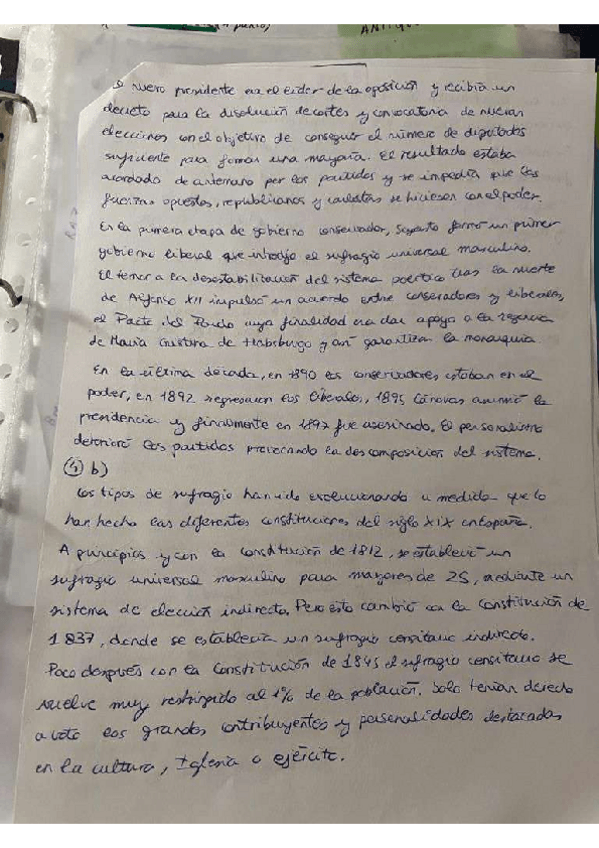 ANTIGU
El nuevo presidente era el líder de la oposición y recibía un
decreto para la disolución de cortes y convocatoria de nuevas
elecciones con el objetivo de conseguir el número de diputados
suficiente para formar una mayoría. El resultado estaba
acordado de antemano por los partidos y se impedía que las
fuerzas opuestas, republicanos y carlistas se hiciesen con el poder.
En la primera etapa de gobierno conservador, Sagasta formó un primer
gobierno liberal que introdujo el sufragio universal masculino.
El temor a la desestabilización del sistema político tras la muerte
de Alfonso XII impulsó un acuerdo entre conservadores y liberales,
el Pacto del Pardo cuya finalidad era dar apoyo a la regencia
de María Cristina de Habsburgo y así garantizar la monarquía.
En la última década, en 1890 los conservadores estaban en el
poder, en 1892 regresaron los liberales, 1895 Cánovas asumió la
presidencia y finalmente en 1897 fue asesinado. El personalismo
deterioró los partidos provocando la descomposición del sistema.
④ b)
Los tipos de sufragio han ido evolucionando a medida que lo
han hecho las diferentes constituciones del siglo XIX en España.
A principios y con la constitución de 1812, se estableció un
sufragio universal masculino para mayores de 25, mediante un
sistema de elección indirecta. Pero esto cambió con la Constitución de
1837, donde se establecía un sufragio censitario indirecto.
Poco después con la Constitución de 1845 el sufragio censitario se
vuelve muy restringido al 1% de la población. Solo tenían derecho
a voto los grandes contribuyentes y personalidades destacadas
en la cultura, Iglesia o ejército.